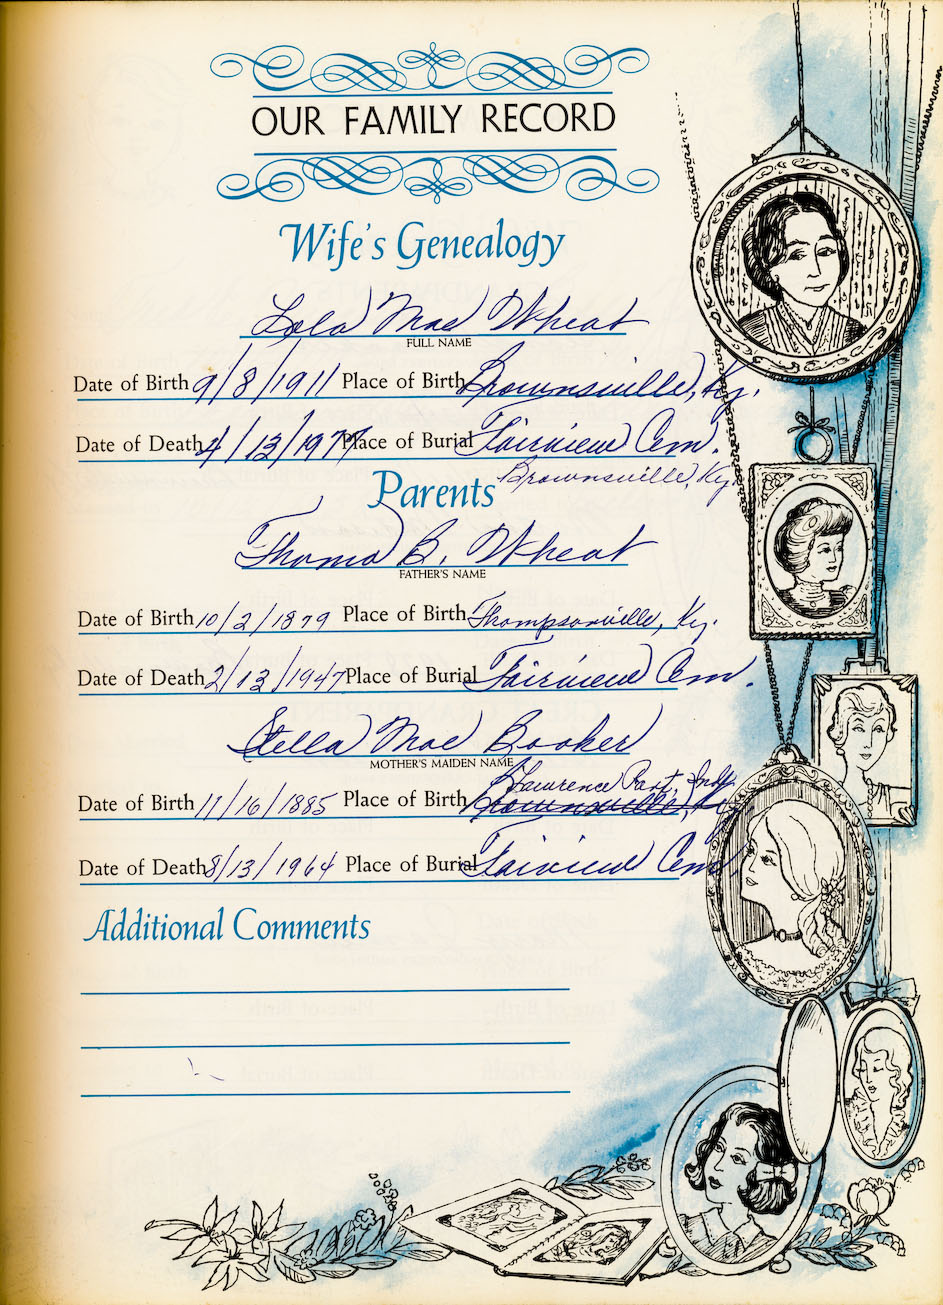 OUR FAMILY RECORD
Wife's Genealogy
Lola Mae Wheat
FULL NAME
Date of Birth 9/8/1911 Place of Birth Brownsville, Ky.
Date of Death 4/13/1977 Place of Burial Fairview Cem.
Brownsville, Ky.
Parents
Thomas B. Wheat
FATHER'S NAME
Date of Birth 10/2/1879 Place of Birth Thompsonville, Ky.
Date of Death 2/13/1947 Place of Burial Fairview Cem.
Stella Mae Booker
MOTHER'S MAIDEN NAME
Lawrence Port, Indy
Date of Birth 11/16/1885 Place of Birth Brownsville, Ky
Date of Death 8/13/1964 Place of Burial Fairview Cem.
Additional Comments